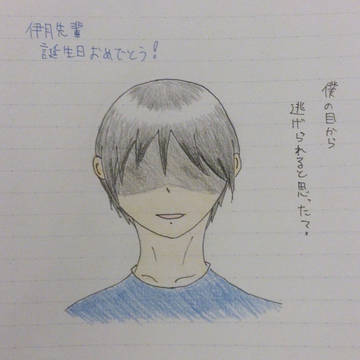 伊月先輩
誕生日おめでとう!
僕の目から
逃げられると思ったて?